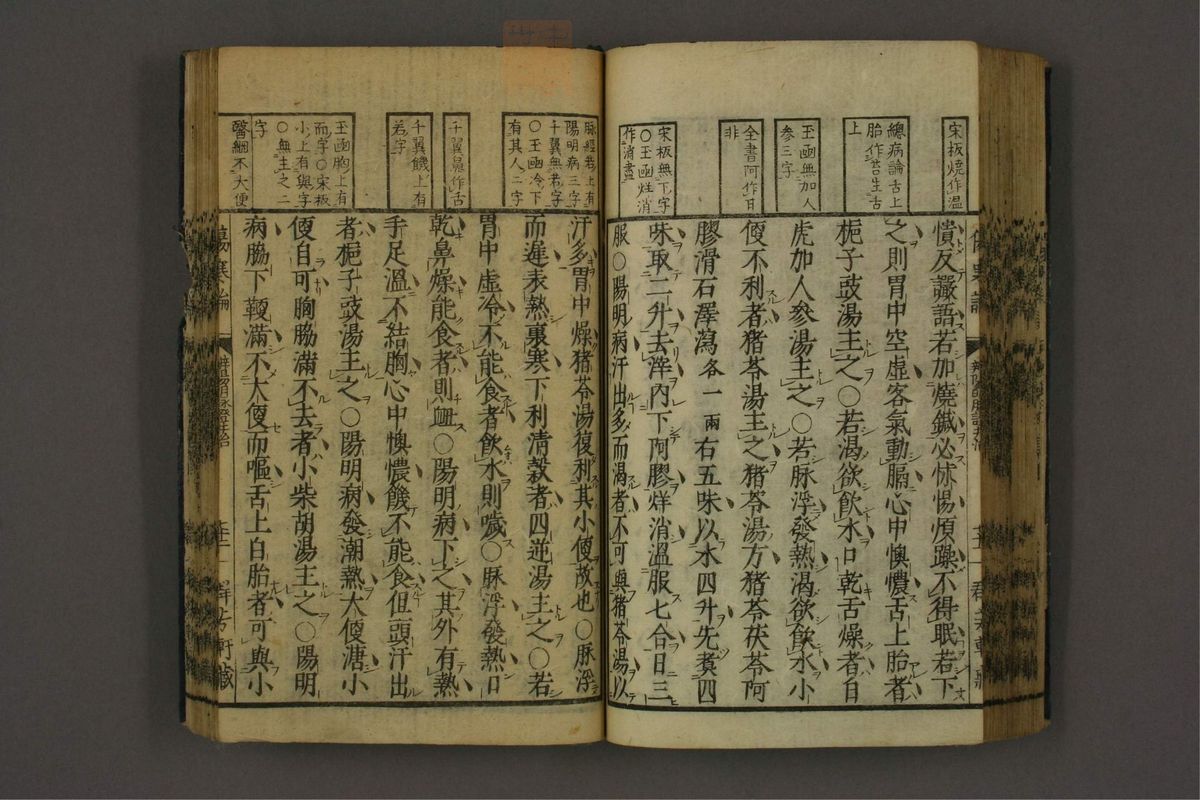 宋板燒作溫
總病論舌上
胎作苔生舌
上
玉函無加人
參三字
全書阿作甘
非
宋板無下字
○玉函烊消
作消盡
憒反讝語若加燒鍼必怵惕煩躁不得眠若下
之則胃中空虛客氣動膈心中懊憹舌上胎者
梔子豉湯主之○若渴欲飲水口乾舌燥者白
虎加人參湯主之○若脉浮發熱渴欲飲水小
便不利者猪苓湯主之猪苓湯方猪苓茯苓阿
膠滑石澤瀉各一兩右五味以水四升先煮四
味取二升去滓內下阿膠烊消溫服七合日三
服○陽明病汗出多而渴者不可與猪苓湯以
脉經若上有
陽明病三字
千翼無若字
○玉函冷下
有其人二字
千翼鼻作舌
千翼饑上有
若字
玉函胸上有
而字○宋板
小上有與字
○無主之二
字
醫綱不大便
汗多胃中燥猪苓湯復利其小便故也○脉浮
而遲表熱裏寒下利清穀者四逆湯主之○若
胃中虛冷不能食者飲水則噦○脉浮發熱口
乾鼻燥能食者則衄○陽明病下之其外有熱
手足溫不結胸心中懊憹饑不能食但頭汗出
者梔子豉湯主之○陽明病發潮熱大便溏小
便自可胸脇滿不去者小柴胡湯主之○陽明
病脇下鞕滿不大便而嘔舌上白胎者可與小
傷寒論